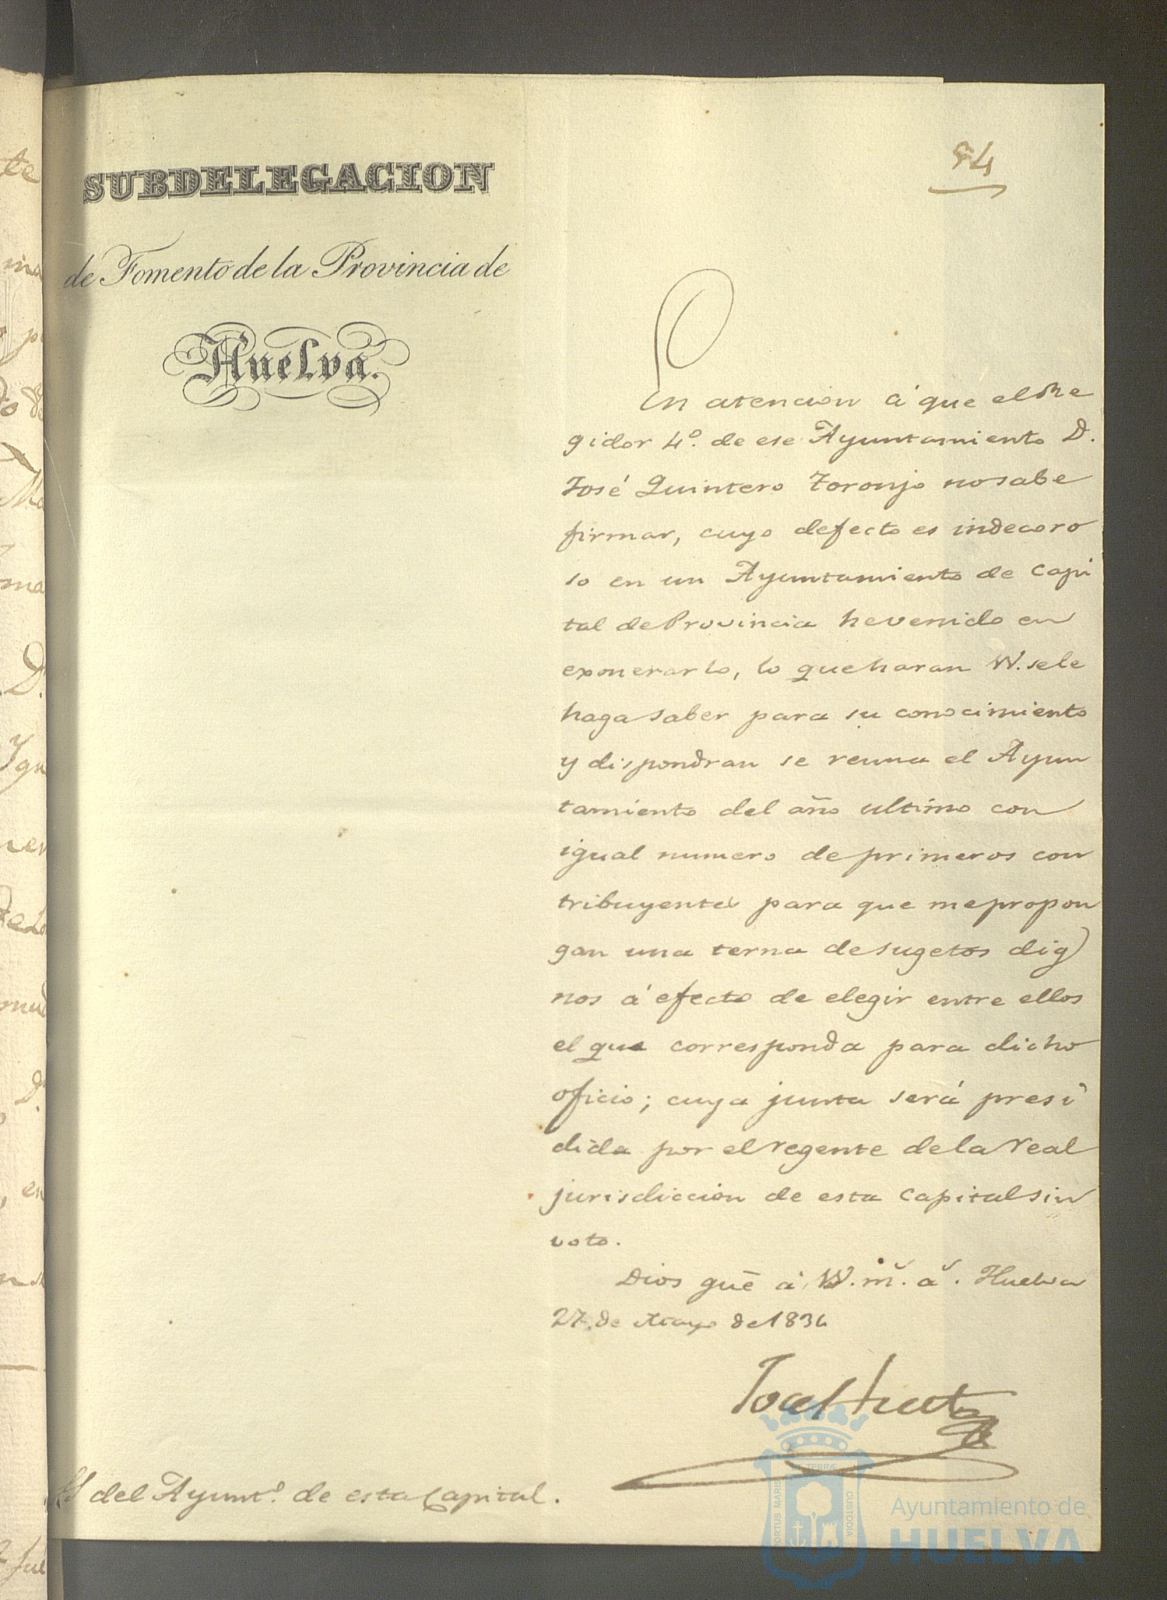 84
SUBDELEGACION
de Fomento de la Provincia de
Huelva.
En atencion á que el Re
gidor 4º. de ese Ayuntamiento D.
José Quintero Toronjo no sabe
firmar, cuyo defecto es indecoro
so en un Ayuntamiento de Capi
tal de Provincia he venido en
exonerarlo, lo que haran VV. se le
haga saber para su conocimiento
y dispondran se reuna el Ayun
tamiento del año ultimo con
igual numero de primeros con
tribuyentes para que me propon
gan una terna de sugetos dig
nos á efecto de elegir entre ellos
el que corresponda para dicho
oficio; cuya junta será presi
dida por el regente de la real
jurisdiccion de esta Capital sin
voto.
Dios gue á VV. m. a. Huelva
27 de Mayo de 1834
José Huet
del Ayuntº. de esta Capital.
PORTUS MARIS
ET TERRÆ
CUSTODIA
Ayuntamiento de
HUELVA